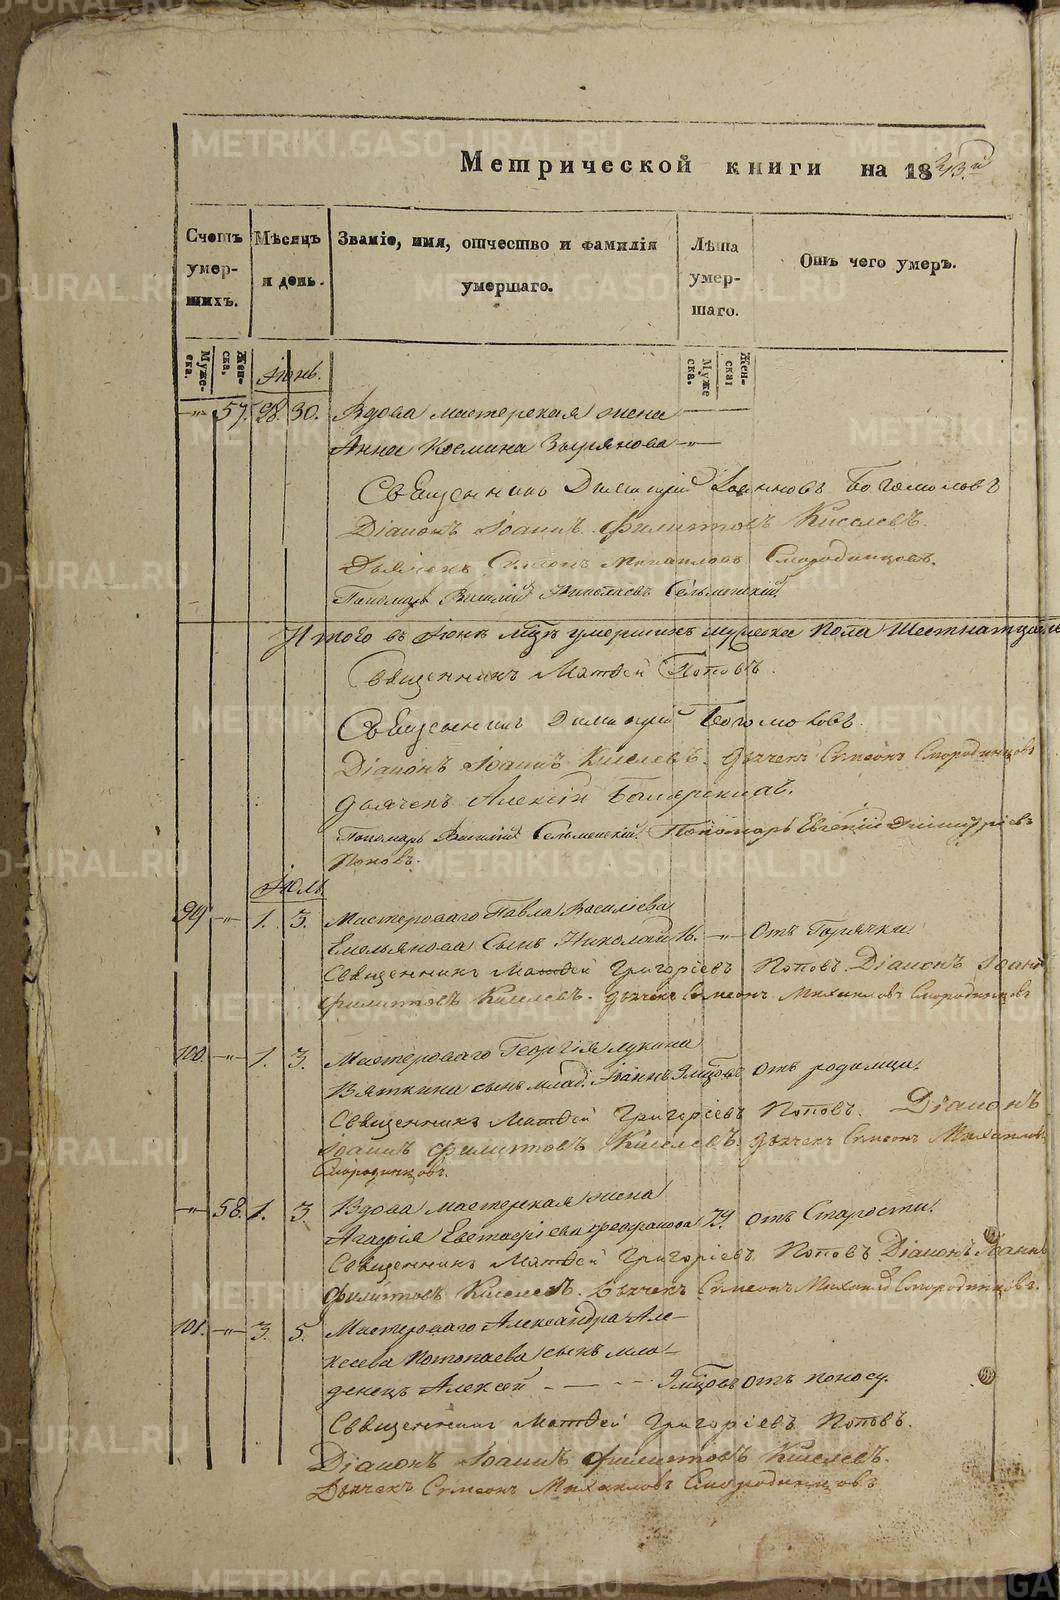 Метрической книги на 1843.й
Счетъ умер- шихъ.
Мѣсяцъ и день.
Званіе, имя, отчество и фамилія умершаго.
Лѣта умер- шаго.
Отъ чего умеръ.
Муже- ска.
Жен- ска.
Муже ска.
Жен- ска:
Іюнь.
-"- 57. 28. 30. Вдова мастерская жена
Анна Козмина Зырянова -"-
Священникъ Димитрій Іоанновъ Богомоловъ
Діаконъ Іоаннъ Филиповъ Киселевъ.
Дьячекъ Симеонъ Михаиловъ Смородинцовъ.
Пономарь Василій Николаевъ Сельменскій
Итого въ Іюнѣ мцѣ умершихъ мужеска пола
Священникъ Матѳей Поповъ.
Священникъ Димитрій Богомоловъ.
Діаконъ Іоаннъ Киселевъ. Дьячекъ Симеонъ Смородинцовъ
Дьячекъ Алексій
Пономарь Василій Сельменскій. Пономарь Евгеній Димитріевъ
Поповъ.
Іюль.
99 -"- 1. 3. Мастероваго Павла Василіева
Емельянова сынъ Николай 16. -"- Отъ Горячки.
Священникъ Матѳей Григоріевъ Поповъ. Діаконъ Іоаннъ
Филиповъ Киселевъ. Дьячекъ Симеонъ Михаиловъ Смородинцовъ
100. -"- 1. 3. Мастероваго Георгія Лукина
Вяткина сынъ млад. Іоаннъ отъ родимца.
Священникъ Матѳей Григоріевъ Поповъ. Діаконъ
Іоаннъ Филиповъ Киселевъ. Дьячекъ Симеонъ Михаиловъ
Смородинцовъ.
-"- 58. 1. 3. Вдова мастерская жена
Агафія Евстафіева Феофанова отъ Старости.
Священникъ Матѳей Григоріевъ Поповъ Діаконъ Іоаннъ
Филиповъ Киселевъ. Дьячекъ Симеонъ Михаил Смородинцовъ.
101. -"- 3. 5. Мастероваго Александра Але-
ксева Потопаева сынъ мла-
денецъ Алексей отъ поносу.
Священникъ Матѳей Григоріевъ Поповъ.
Діаконъ Іоаннъ Филиповъ Киселевъ.
Дьячекъ Симеонъ Михаиловъ Смородинцовъ
METRIKI.GASO-URAL.RU